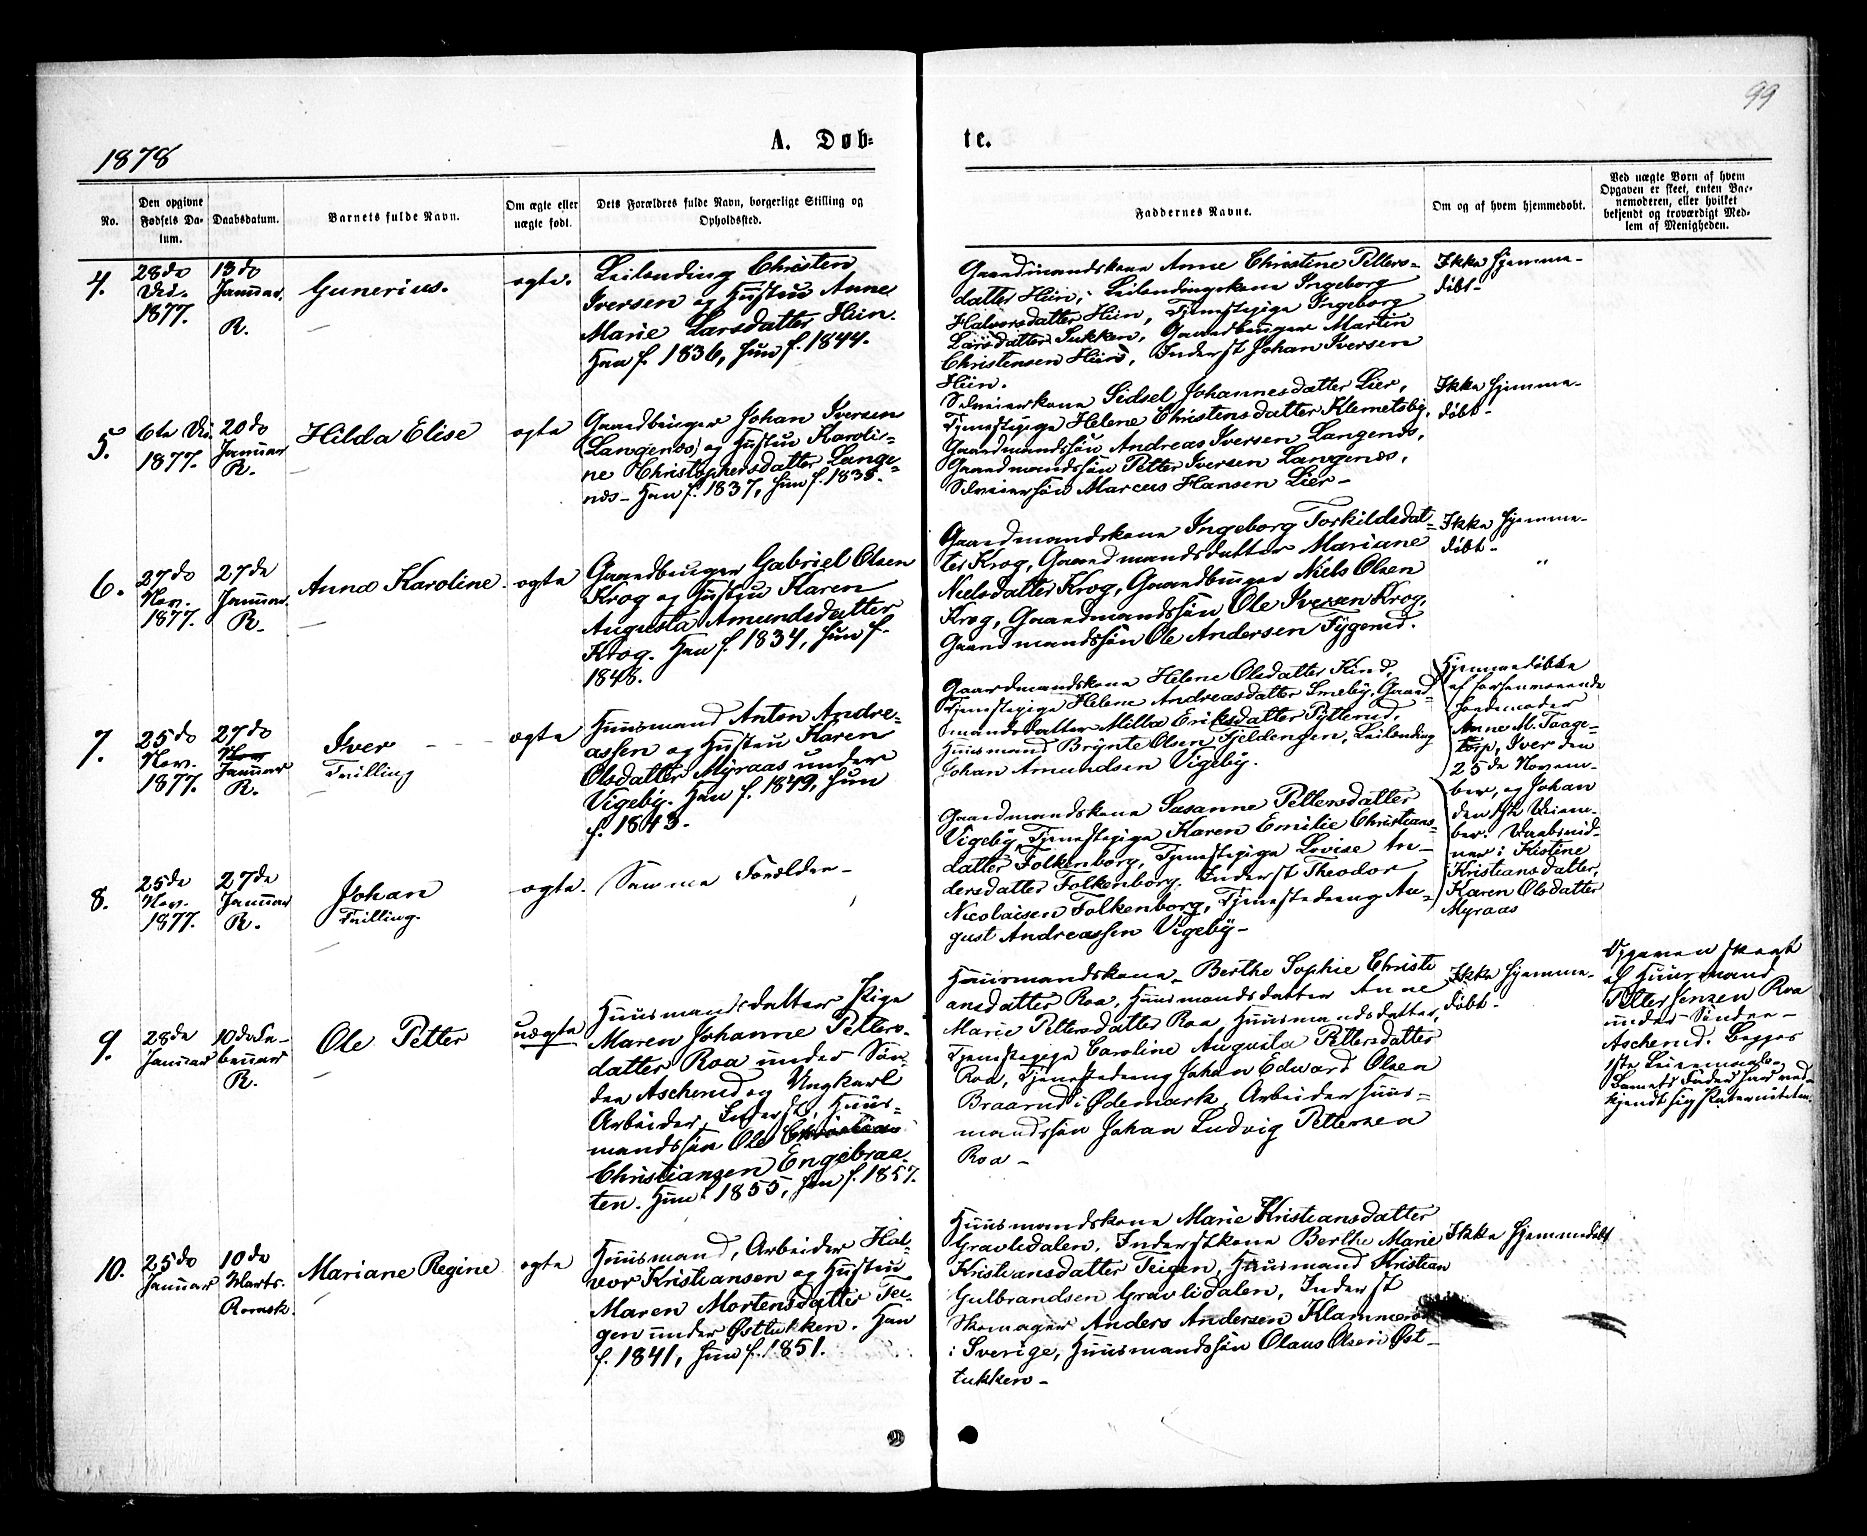 99
1878
A. Døb-
te.
No.
Den opgivne
Fødsels Da-
tum.
Daabsdatum.
Barnets fulde Navn.
Om ægte eller
uægte født.
Dets Forældres fulde Navn, borgerlige Stilling og
Opholdssted.
Faddernes Navne.
Om og af hvem hjemmedøbt.
Ved uægte Børn af hvem
Opgaven er skeet, enten Bar-
nemoderen, eller hvilket
bekjendt og troværdigt Med-
lem af Menigheden.
4.
28de
Dec.
1877.
13de
Januar.
R.
Gunerius.
ægte.
Leilending Christen
Iversen og Hustru Anne
Marie Larsdatter Hiin.
Han f. 1836, hun f. 1844.
Gaardmandskone Anne Christine Petters-
datter Hiin, Leilendingskone Ingeborg
Halvorsdatter Hiin, Tjenestepige Ingeborg
Larsdatter Tukken, Gaardbruger Martin
Christensen Hiin, Inderst Johan Iversen
Hiin.
Ikke hjemme-
døbt.
5.
6te Dec.
1877.
20de
Januar
R.
Hilda Elise
ægte
Gaardbruger Johan Iversen
Langenæs og Hustru Karoli-
ne Christophersdatter Lange-
næs. Han f. 1837, hun f. 1838.
Selveierkone Sidsel Johannesdatter Lier,
Tjenestepige Helene Christensdatter Klemetsby,
Gaardmandssøn Andreas Iversen Langenæs,
Gaardmandssøn Petter Iversen Langenæs,
Selveiersøn Marcus Hansen Lier
Ikke hjemme-
døbt.
6.
27de
Nov.
1877.
27de
Januar.
R.
Anna Karoline
ægte
Gaardbruger Gabriel Olsen
Krog og Hustru Karen
Augusta Amundsdatter
Krog. Han f. 1834, hun f.
1848.
Gaardmandskone Ingeborg Torkildsdat-
ter Krog, Gaardmandsdatter Mariane
Nielsdatter Krog, Gaardbruger Niels Olsen
Krog, Gaardmandssøn Ole Iversen Krog,
Gaardmandssøn Ole Andersen Tygerud.
Ikke hjemme-
døbt.
"
7.
25de
Nov.
1877.
27de
Nov
Januar
R.
Iver
Tvilling
ægte
Huusmand Anton Andre-
assen og Hustru Karen
Olsdatter Myraas under
Vigeby. Han f. 1849, hun
f. 1843.
Gaardmandskone Helene Olsdatter Kind,
Tjenestepige Helene Andreasdatter Smeby, Gaard-
mandsdatter Milla Eriksdatter Pytterud,
Huusmand Brynte Olsen Fjeldengen, Leilending
Johan Amundsen Vigeby.
Hjemmedøbte
af
Jordemoder
Anne M. Taage-
torp, Iver den
25de Novem-
ber, og Johan
den 1ste Decem-
ber. Daabsvid-
ner: Kistine
Kristiansdatter,
Karen Olsdatter
Myraas
8.
25de
Nov.
1877.
27de
Januar
R.
Johan
Tvilling.
ægte.
Samme Forældre
Gaardmandskone Susanne Pettersdatter
Vigeby, Tjenestepige Karen Emilie Christians-
datter Folkenborg, Tjenestepige Lovise An-
dersdatter Folkenborg. Inderst Theodor
Nicolaisen Folkenborg, Tjenestedreng Au-
gust Andreassen Vigeby
9.
28de
Januar
10de Fe-
bruar
R.
Ole Petter
uægte
Huusmandsdatter Pige
Maren Johanne Petters-
datter Roa under Søn-
dre Ascherud og Ungkarl
Arbeider, Inderst, Huus-
mandssøn Ole
Christiansen Engebraa-
ten. Hun f. 1855, han f. 1857.
Huusmandskone Berthe Sophie Christi-
ansdatter Roa, Huusmandsdatter Anne
Marie Pettersdatter Roa, Huusmandsdatter,
Tjenestepige Caroline Augusta Pettersdatter
Roa, Tjenestedreng Johan Edward Olsen
Braarud i Ødemark, Arbeider Huus-
mandssøn Johan Ludvig Pettersen
Roa
Ikke hjemme-
døbt.
Opgaven skeet
af Huusmand
Petter Jensen Roa
under Søndre
Ascherud. Begges
1ste Leiermaal.
Barnets Fader har ved-
kjendt sig Paterniteten.
10.
25de
Januar
10de
Marts.
Romsk.
Mariane Regine
ægte
Huusmand, Arbeider Hal-
vor Kristiansen og Hustru
Maren Mortensdatter Tei-
gen under Østtukken. Han
f. 1841, hun f. 1851.
Huusmandskone Marie Kristiansdatter
Gravlidalen, Inderstkone Berthe Marie
Kristiansdatter Teigen, Huusmand Kristian
Gulbrandsen Gravlidalen, Inderst
Skomager Anders Andersen
i Sverige, Huusmandssøn Olaus Olsen Øst-
tukken
Ikke hjemmedøbt